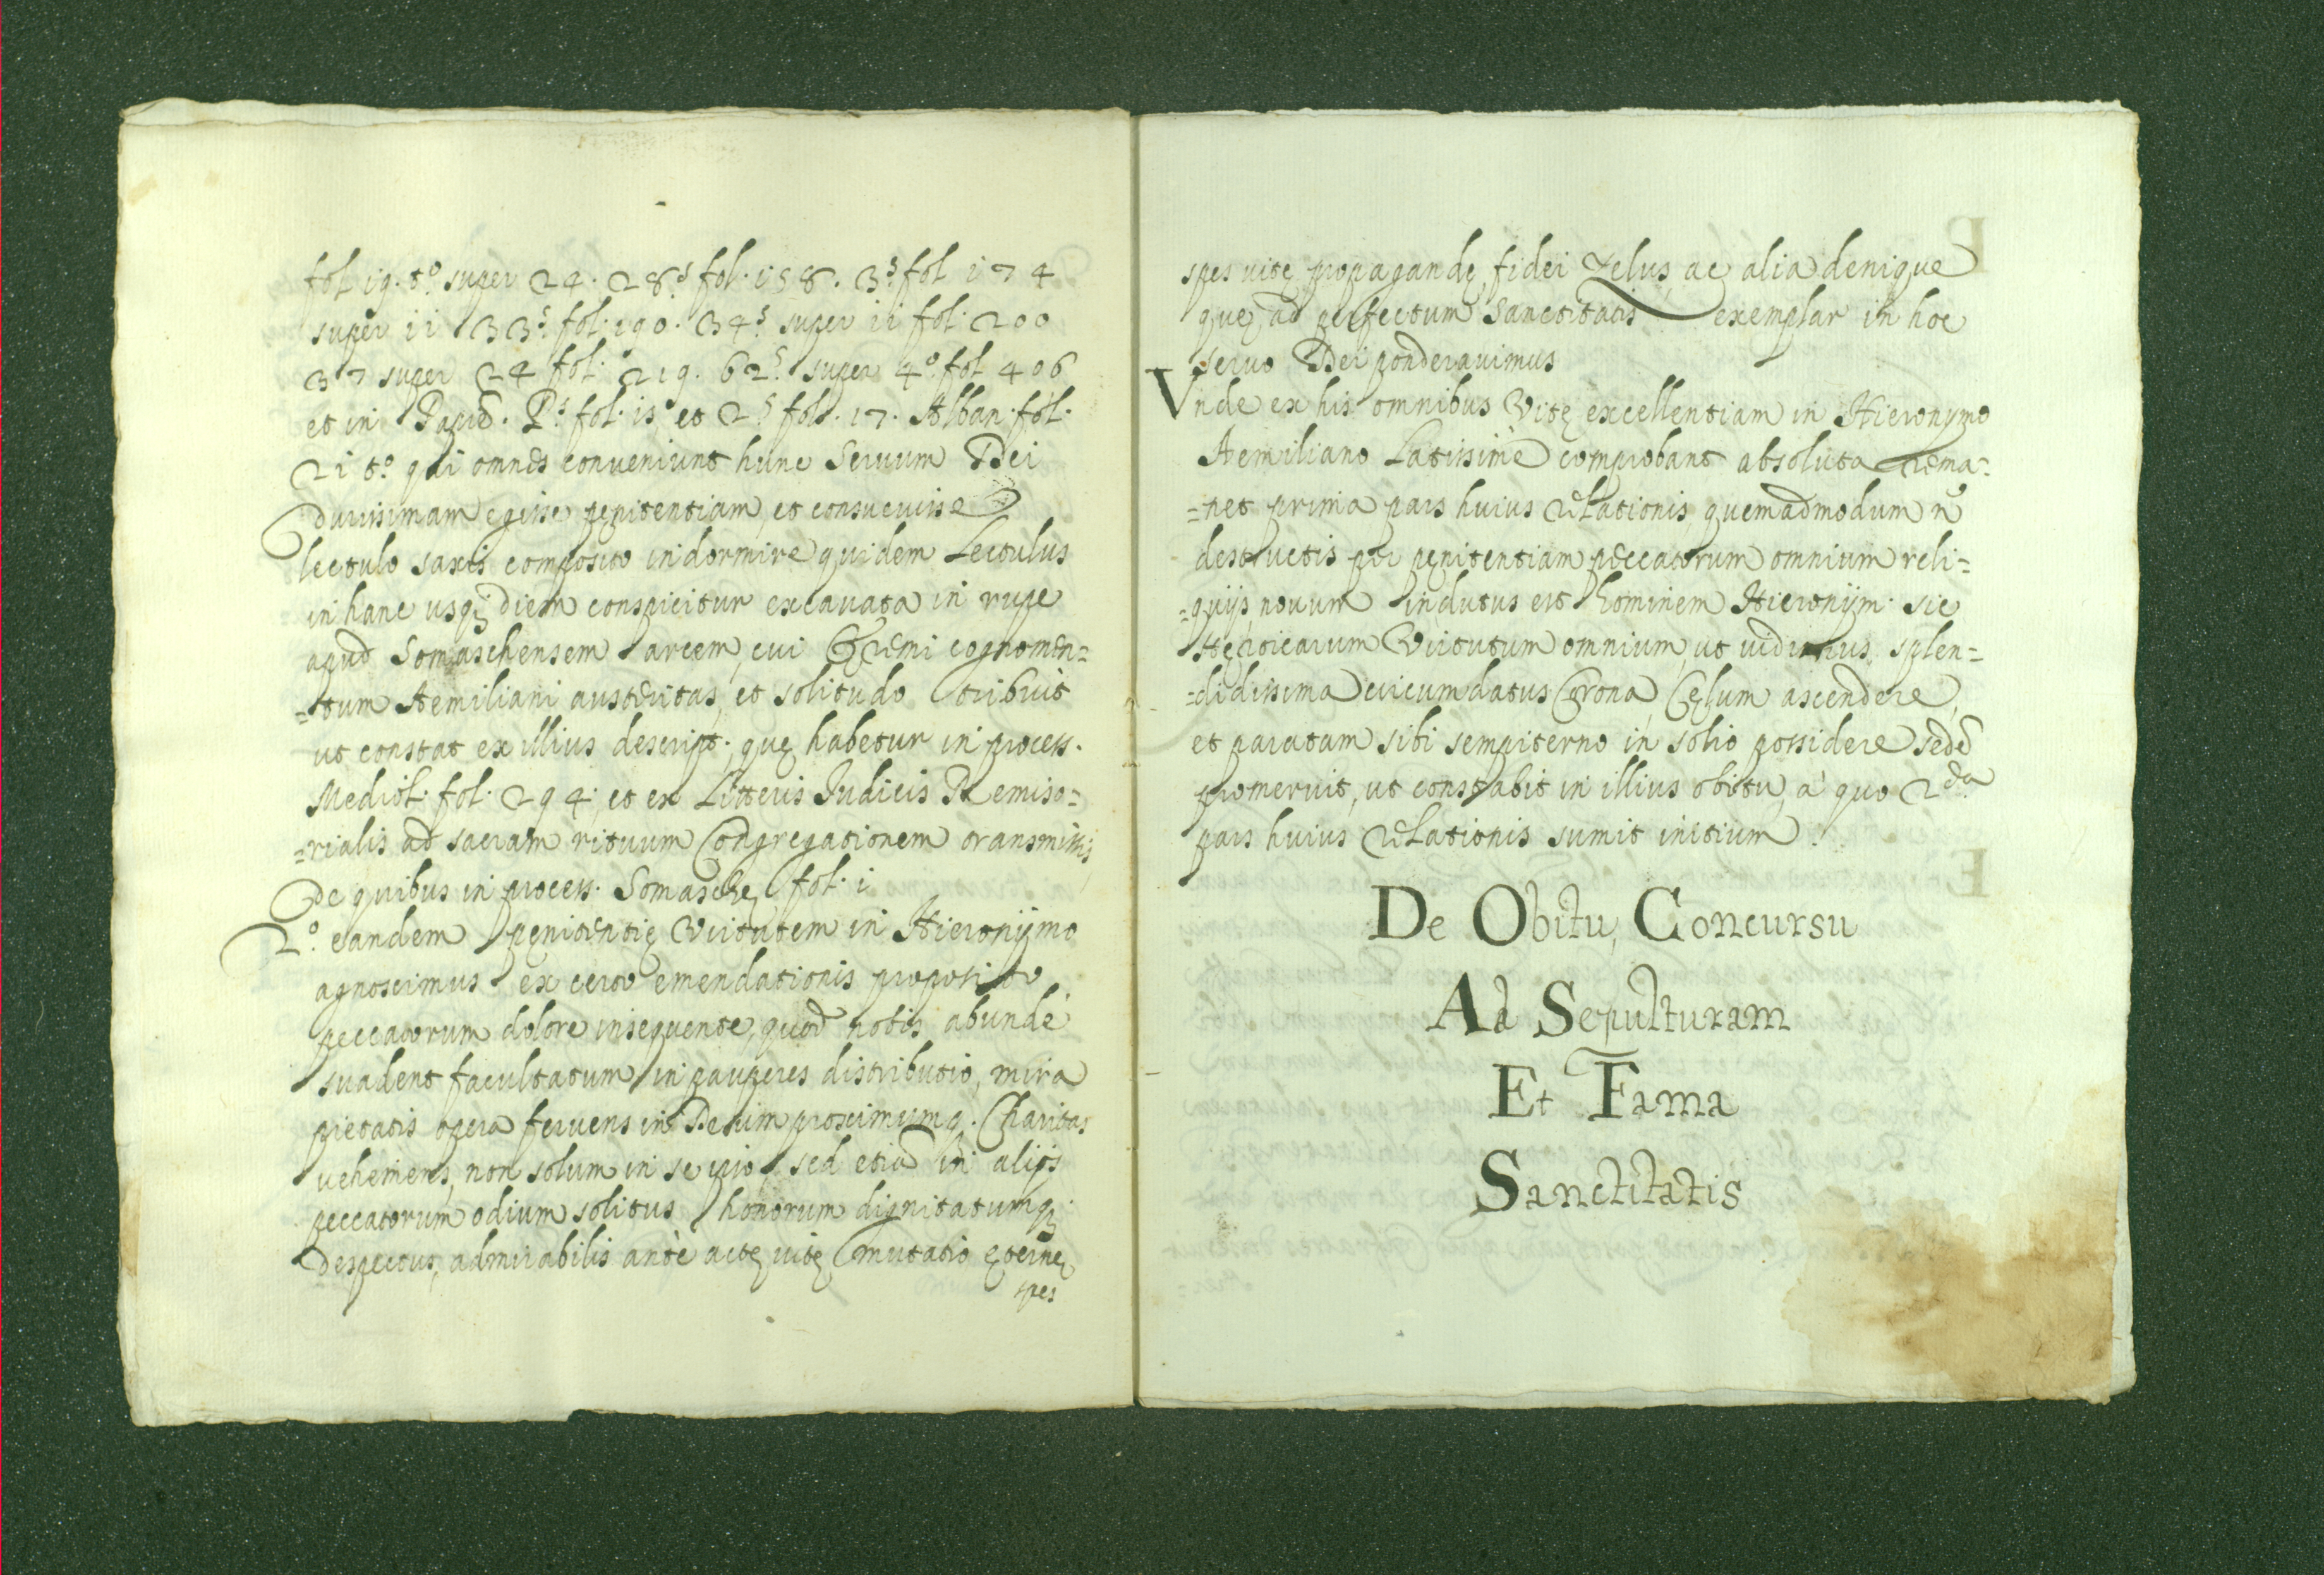 fol 19. t.º super 24. 28.s fol. 158. 3.s fol 174
super 11 33.s fol. 190. 34.s super 11 fol. 200
37 super 24 fol. 219. 62.s super 4.º fol 406
et in Papiẽ. P.s fol. 15 et 2.s fol. 17. Alban. fol.
21 t.º qui omnes conveniunt hunc Servum Dei
durissimam egisse pęnitentiam, et consuevisse
lectulo saxis composito indormire quidem Lectulus
in hanc usq; diem conspicitur excavata in rupe
apud Somaschensem arcem, cui Eremi cognomen=
=tum Aemiliani austeritas, et solitudo tribuit
ut constat ex illius descript. quę habetur in process.
Mediol. fol. 294. et ex Litteris Iudicis Remiso=
=rialis ad sacram rituum Congregationem transmissis
De quibus in process. Somaschę fol. i
2.º eandem pęnitentię Virtutem in Hieronymo
agnoscimus ex certo emendationis proposito,
peccatorum dolore insequente, quod nobis abundè
suadent facultatum in pauperes distributio, mira
pietatis opera fervens in Deum proximumq. Charitas
vehemens, non solum in se ipso, sed etiã in alijs
peccatorum odium solitus honorum dignitatumq;
Despectus, admirabilis antè actę vitę mutatio ęternę
spes
spes vitę, propagandę fidei Zelus, ac alia denique
quę ad perfectum Sanctitatis exemplar in hoc
servo Dei ponderavimus
Vnde ex his omnibus Vitę excellentiam in Hieronymo
Aemiliano Latissimè comprobant absoluta rema=
=net prima pars huius relationis quemadmodum n̄
destructis per pęnitentiam peccatorum omnium reli=
=quijs novum indutus est hominem Hieronym. sic
Hęroicarum Virtutum omnium, ut vidimus, splen=
=didissima circumdatus Corona, Cęlum ascendere,
et paratam sibi sempiterno in solio possidere sedẽ
promeruit, ut constabit in illius obitu, à quo 2.da
pars huius relationis sumit initium.
De Obitu, Concursu
Ad Sepulturam
Et Fama
Sanctitatis